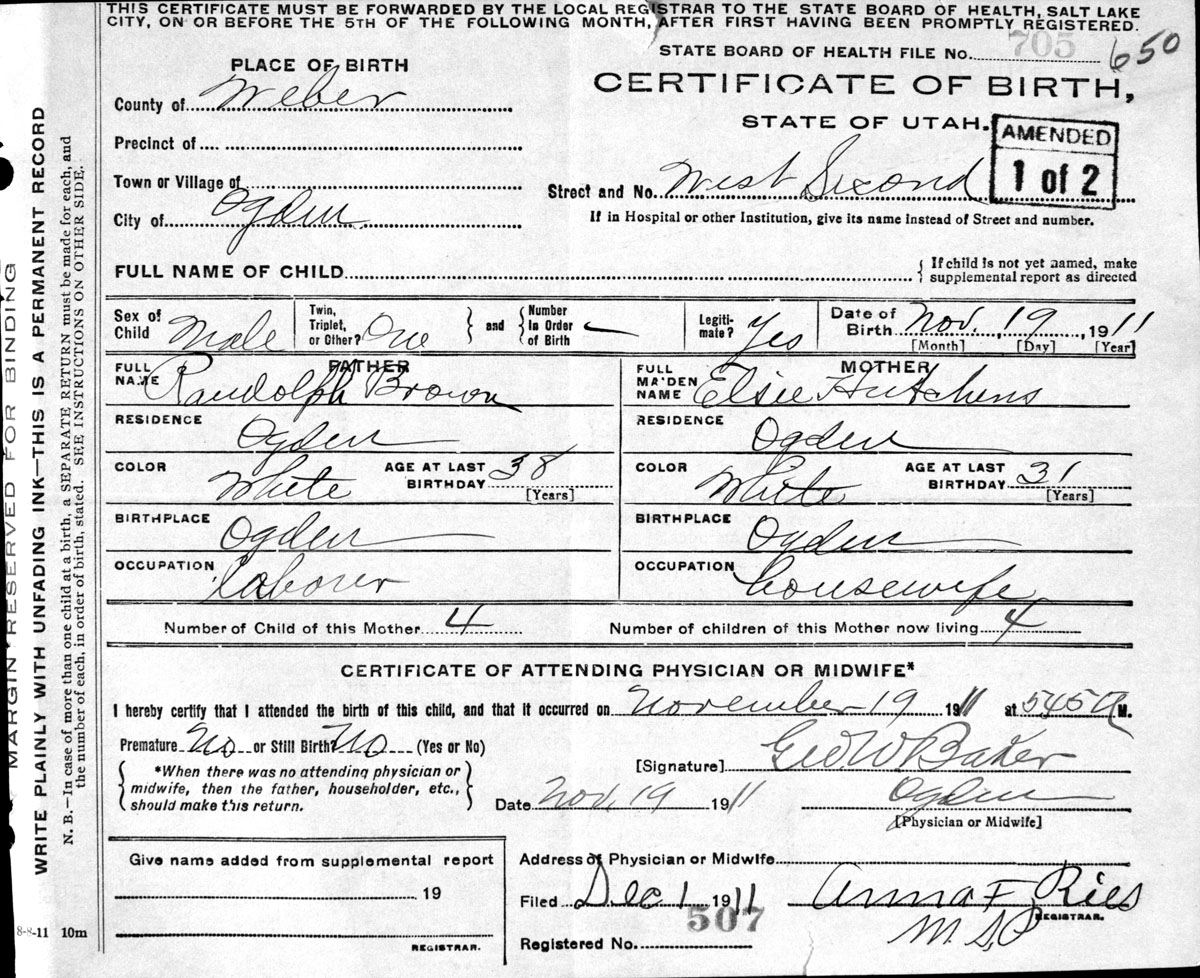 THIS CERTIFICATE MUST BE FORWARDED BY THE LOCAL REGISTRAR TO THE STATE BOARD OF HEALTH, SALT LAKE
CITY, ON OR BEFORE THE 5TH OF THE FOLLOWING MONTH, AFTER FIRST HAVING BEEN PROMPTLY REGISTERED.
STATE BOARD OF HEALTH FILE No. 705 650
PLACE OF BIRTH
CERTIFICATE OF BIRTH,
STATE OF UTAH.
AMENDED
1 of 2
County of Weber
Precinct of
Town or Village of
City of Ogden
Street and No. West Second
If in Hospital or other Institution, give its name instead of Street and number.
FULL NAME OF CHILD
{ If child is not yet named, make
supplemental report as directed
Sex of Child Male Twin, Triplet, or Other? One } and { Number In Order of Birth Legiti-mate? Yes Date of Birth Nov. 19, 1911
[Month] [Day] [Year]
FATHER MOTHER
FULL NAME Randolph Brown FULL MAIDEN NAME Elsie Hutchens
RESIDENCE Ogden RESIDENCE Ogden
COLOR White AGE AT LAST BIRTHDAY 38 [Years] COLOR White AGE AT LAST BIRTHDAY 31 [Years]
BIRTHPLACE Ogden BIRTHPLACE Ogden
OCCUPATION laborer OCCUPATION housewife
Number of Child of this Mother 4 Number of children of this Mother now living 4
CERTIFICATE OF ATTENDING PHYSICIAN OR MIDWIFE*
I hereby certify that I attended the birth of this child, and that it occurred on November 19 1911 at 545 A M.
Premature No or Still Birth No (Yes or No)
[Signature] Geo W Baker
{ *When there was no attending physician or
midwife, then the father, householder, etc.,
should make this return. }
Date Nov. 19 1911 Ogden
[Physician or Midwife]
Give name added from supplemental report
19
REGISTRAR.
Address of Physician or Midwife
Filed Dec 1 1911 Anna F Ries
REGISTRAR.
507
Registered No.
8-8-11 10m
MARGIN RESERVED FOR BINDING
WRITE PLAINLY WITH UNFADING INK—THIS IS A PERMANENT RECORD
N. B.—In case of more than one child at a birth, a SEPARATE RETURN must be made for each, and
the number of each, in order of birth, stated. SEE INSTRUCTIONS ON OTHER SIDE.